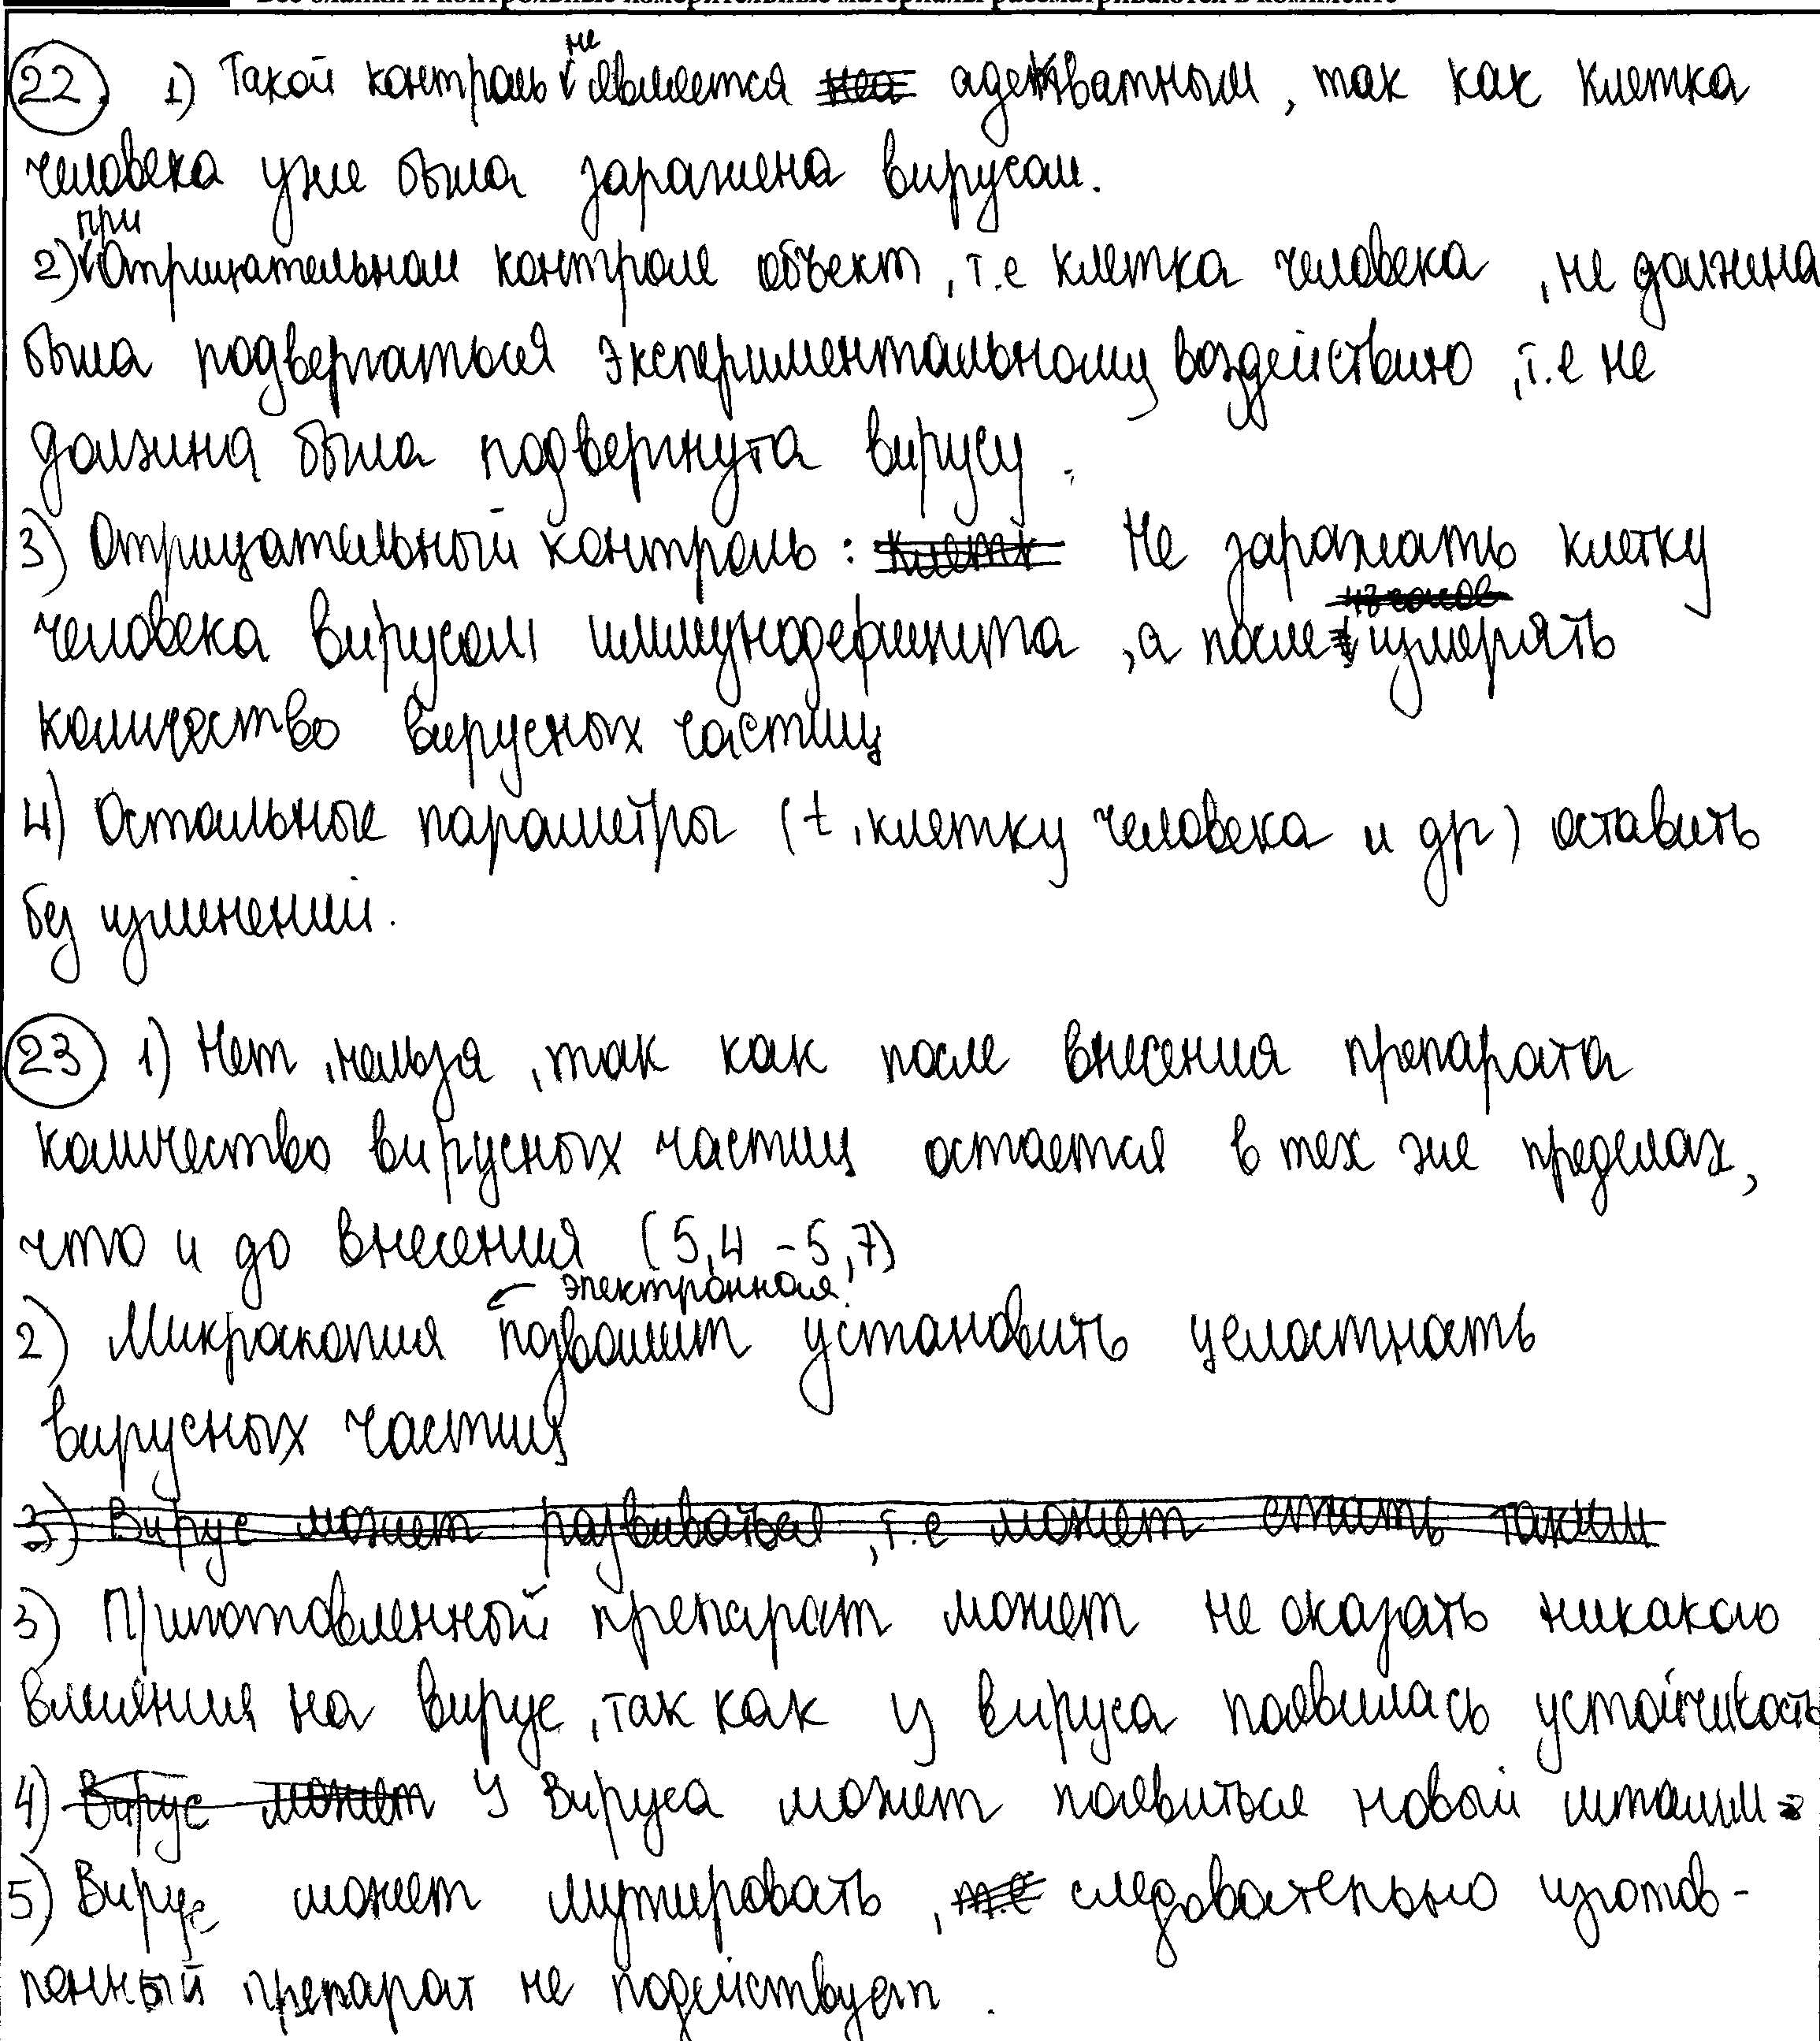 Все бланки и контрольные измерительные материалы рассматриваются в комплекте
22. 1) Такой контроль не является адекватным, так как клетка
человека уже была заражена вирусом.
2) при Отрицательном контроле объект, т.е клетка человека, не должна
была подвергаться экспериментальному воздействию, т.е не
должна была подвергнута вирусу.
3) Отрицательный контроль: Не заражать клетку
человека вирусом иммунодефицита, а после измерять
количество вирусных частиц
4) Остальные параметры (t, клетку человека и др) оставить
без изменений.
23. 1) Нет, нельзя, так как после внесения препарата
количество вирусных частиц остается в тех же пределах,
что и до внесения (5,4 - 5,7)
2) Микроскопия электронная позволит установить целостность
вирусных частиц
3) Вирус может развиваться, т.е может стать таким
3) Приготовленный препарат может не оказать никакого
влияния на вирус, так как у вируса появилась устойчивость
4) Вирус может У вируса может появиться новый штамм
5) Вирус может мутировать, следовательно изготов-
ленный препарат не подействует.